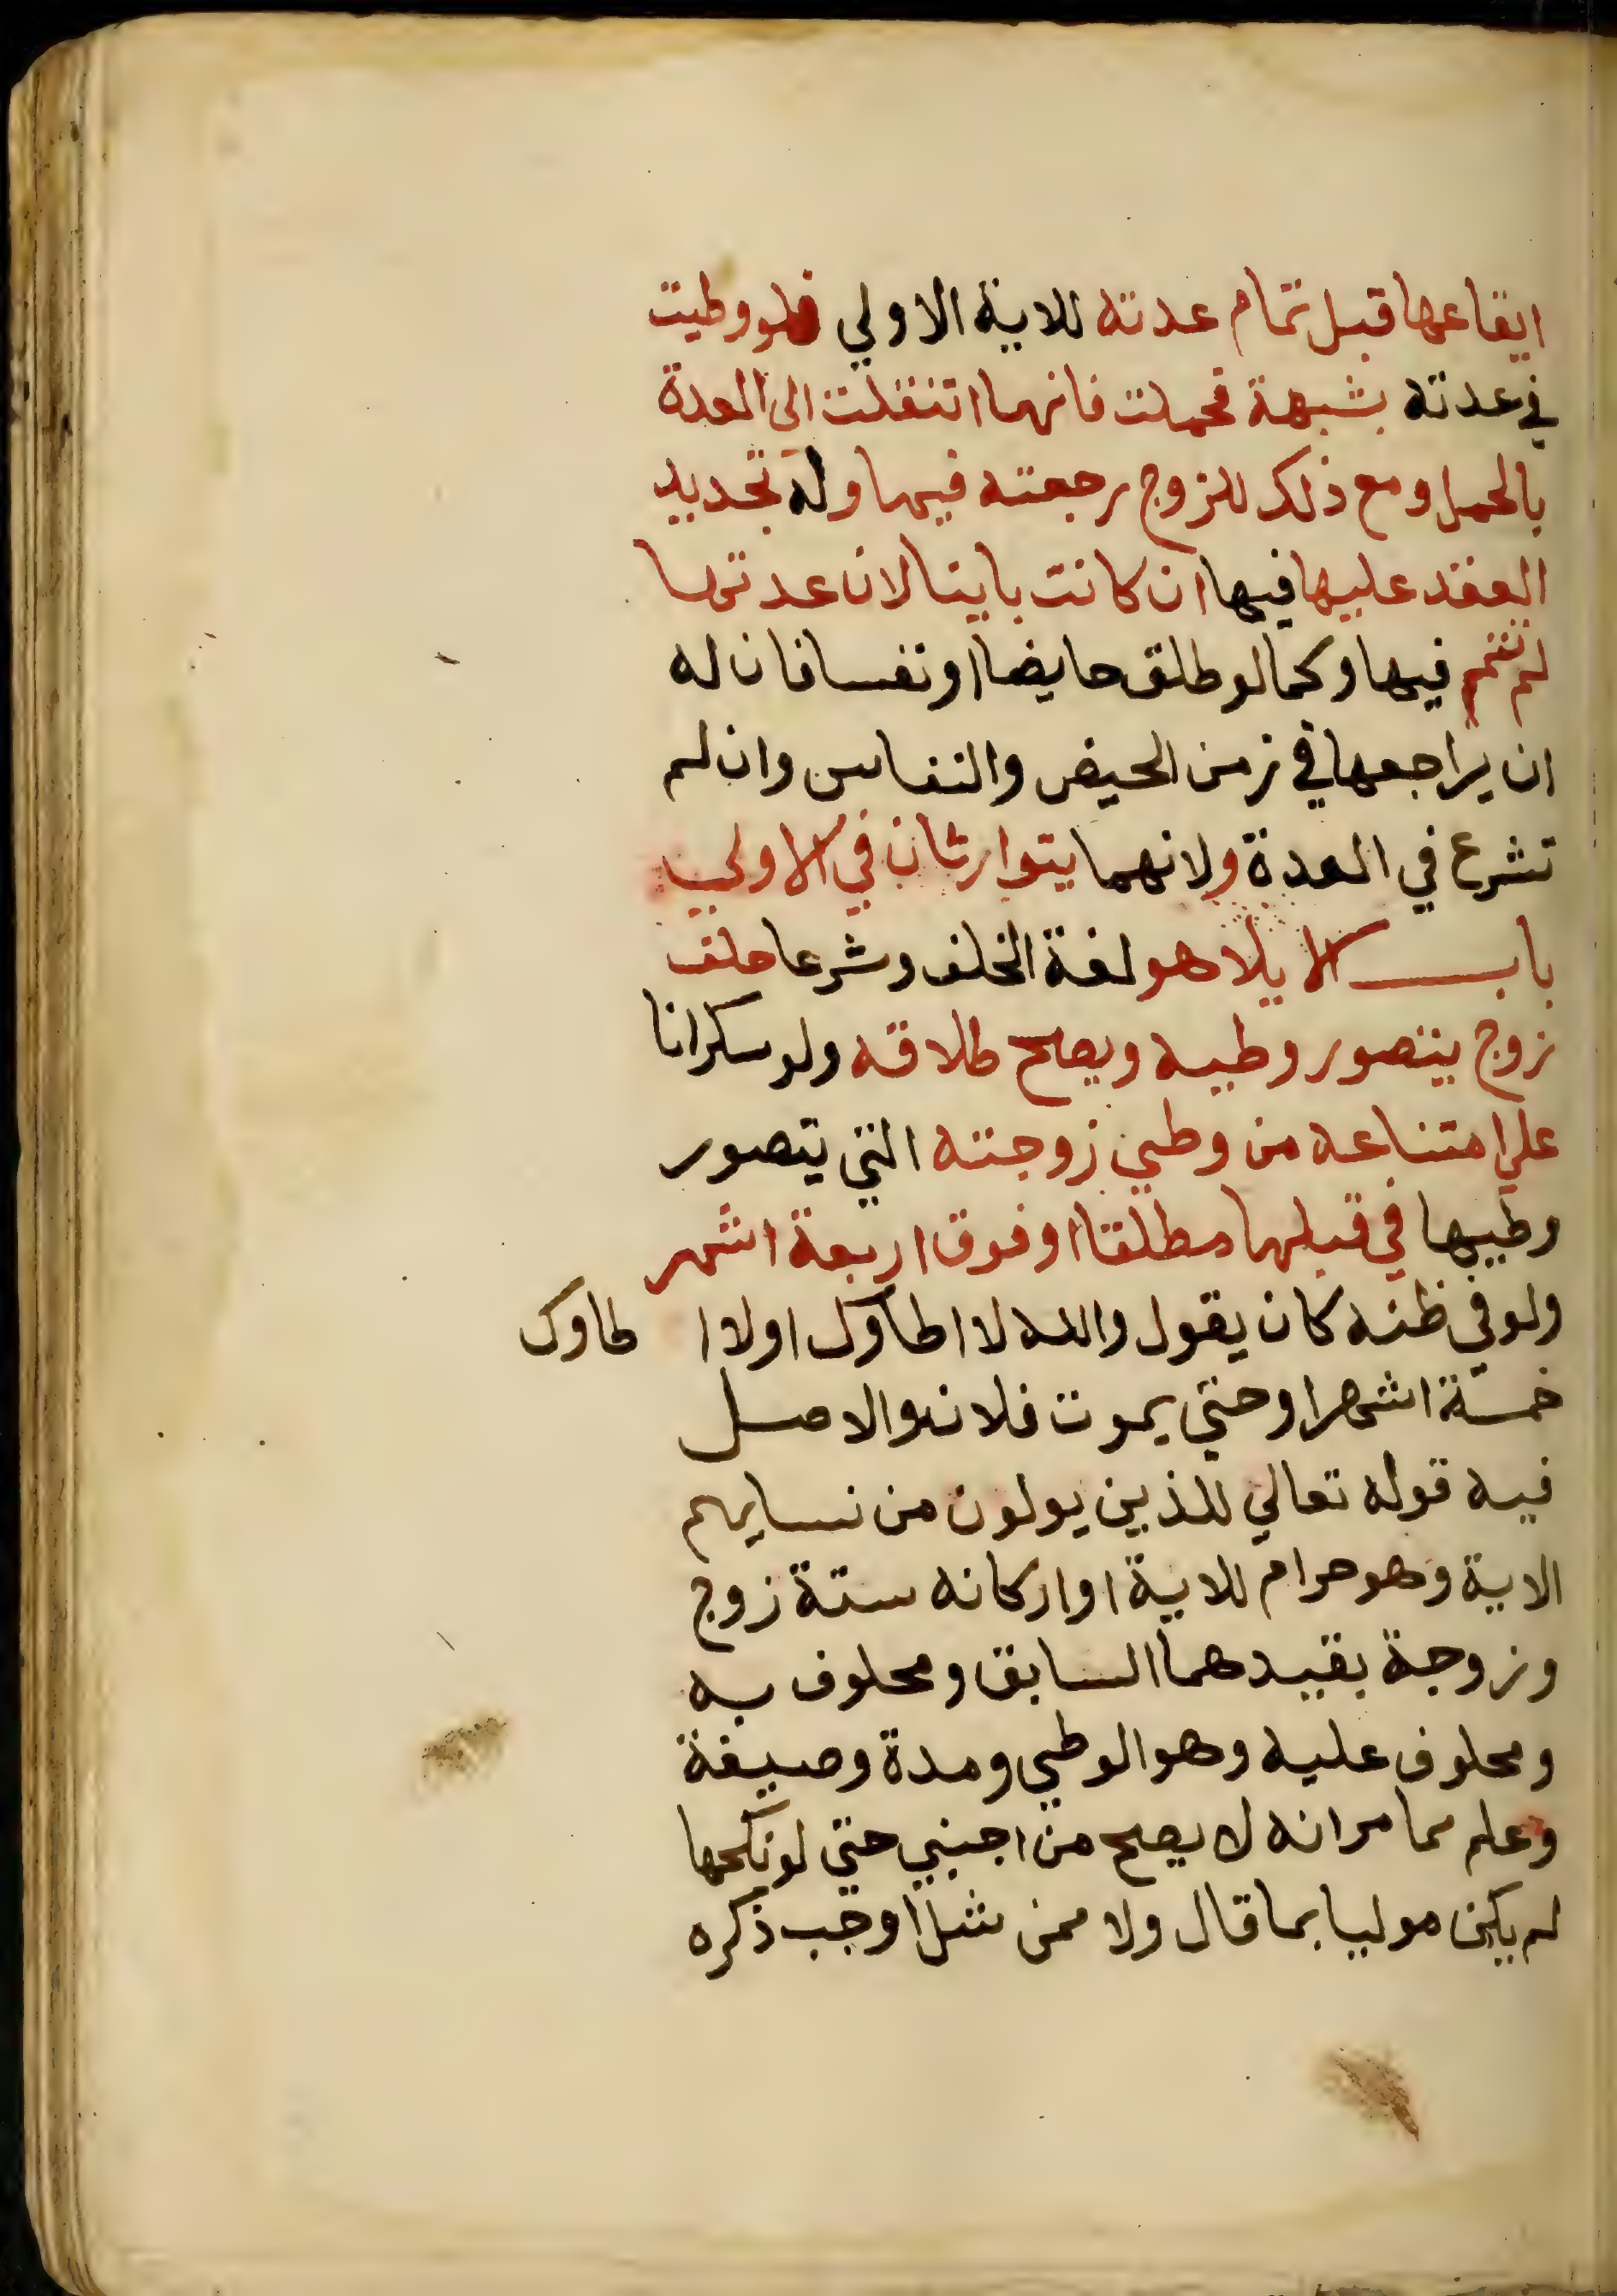 ايقاعها قبل تمام عدته للاية الاولي فلو وطيت
في عدته بشبهة فحملت فانها انتقلت الى العدة
بالحمل ومع ذلك للزوج رجعته فيها وله تجديد
العقد عليها فيها ان كانت باينا لان عدتها
لم تتم فيها وكما لو طلق حايضا او نفسا فان له
ان يراجعها في زمن الحيض والنفاس وان لم
تشرع في العدة ولانهما يتوارثان في الاولي
باب الايلا هو لغة الحلف وشرعا حلف
زوج يتصور وطيه ويصح طلاقه ولو سكرانا
علي امتناعه من وطي زوجته التي يتصور
وطيها في قبلها مطلقا او فوق اربعة اشهر
ولو في ظنه كان يقول والله لا اطاوك او لا ا طاوك
خمسة اشهر او حتي يموت فلان والاصل
فيه قوله تعالي للذين يولون من نسايهم
الاية وهو حرام للاية او اركانه ستة زوج
وزوجة بقيدهما السابق ومحلوف به
ومحلوف عليه وهو الوطي ومدة وصيغة
وعلم مما مر انه لا يصح من اجنبي حتي لو نكحها
لم يكن موليا بما قال ولا ممن شل او جب ذكره